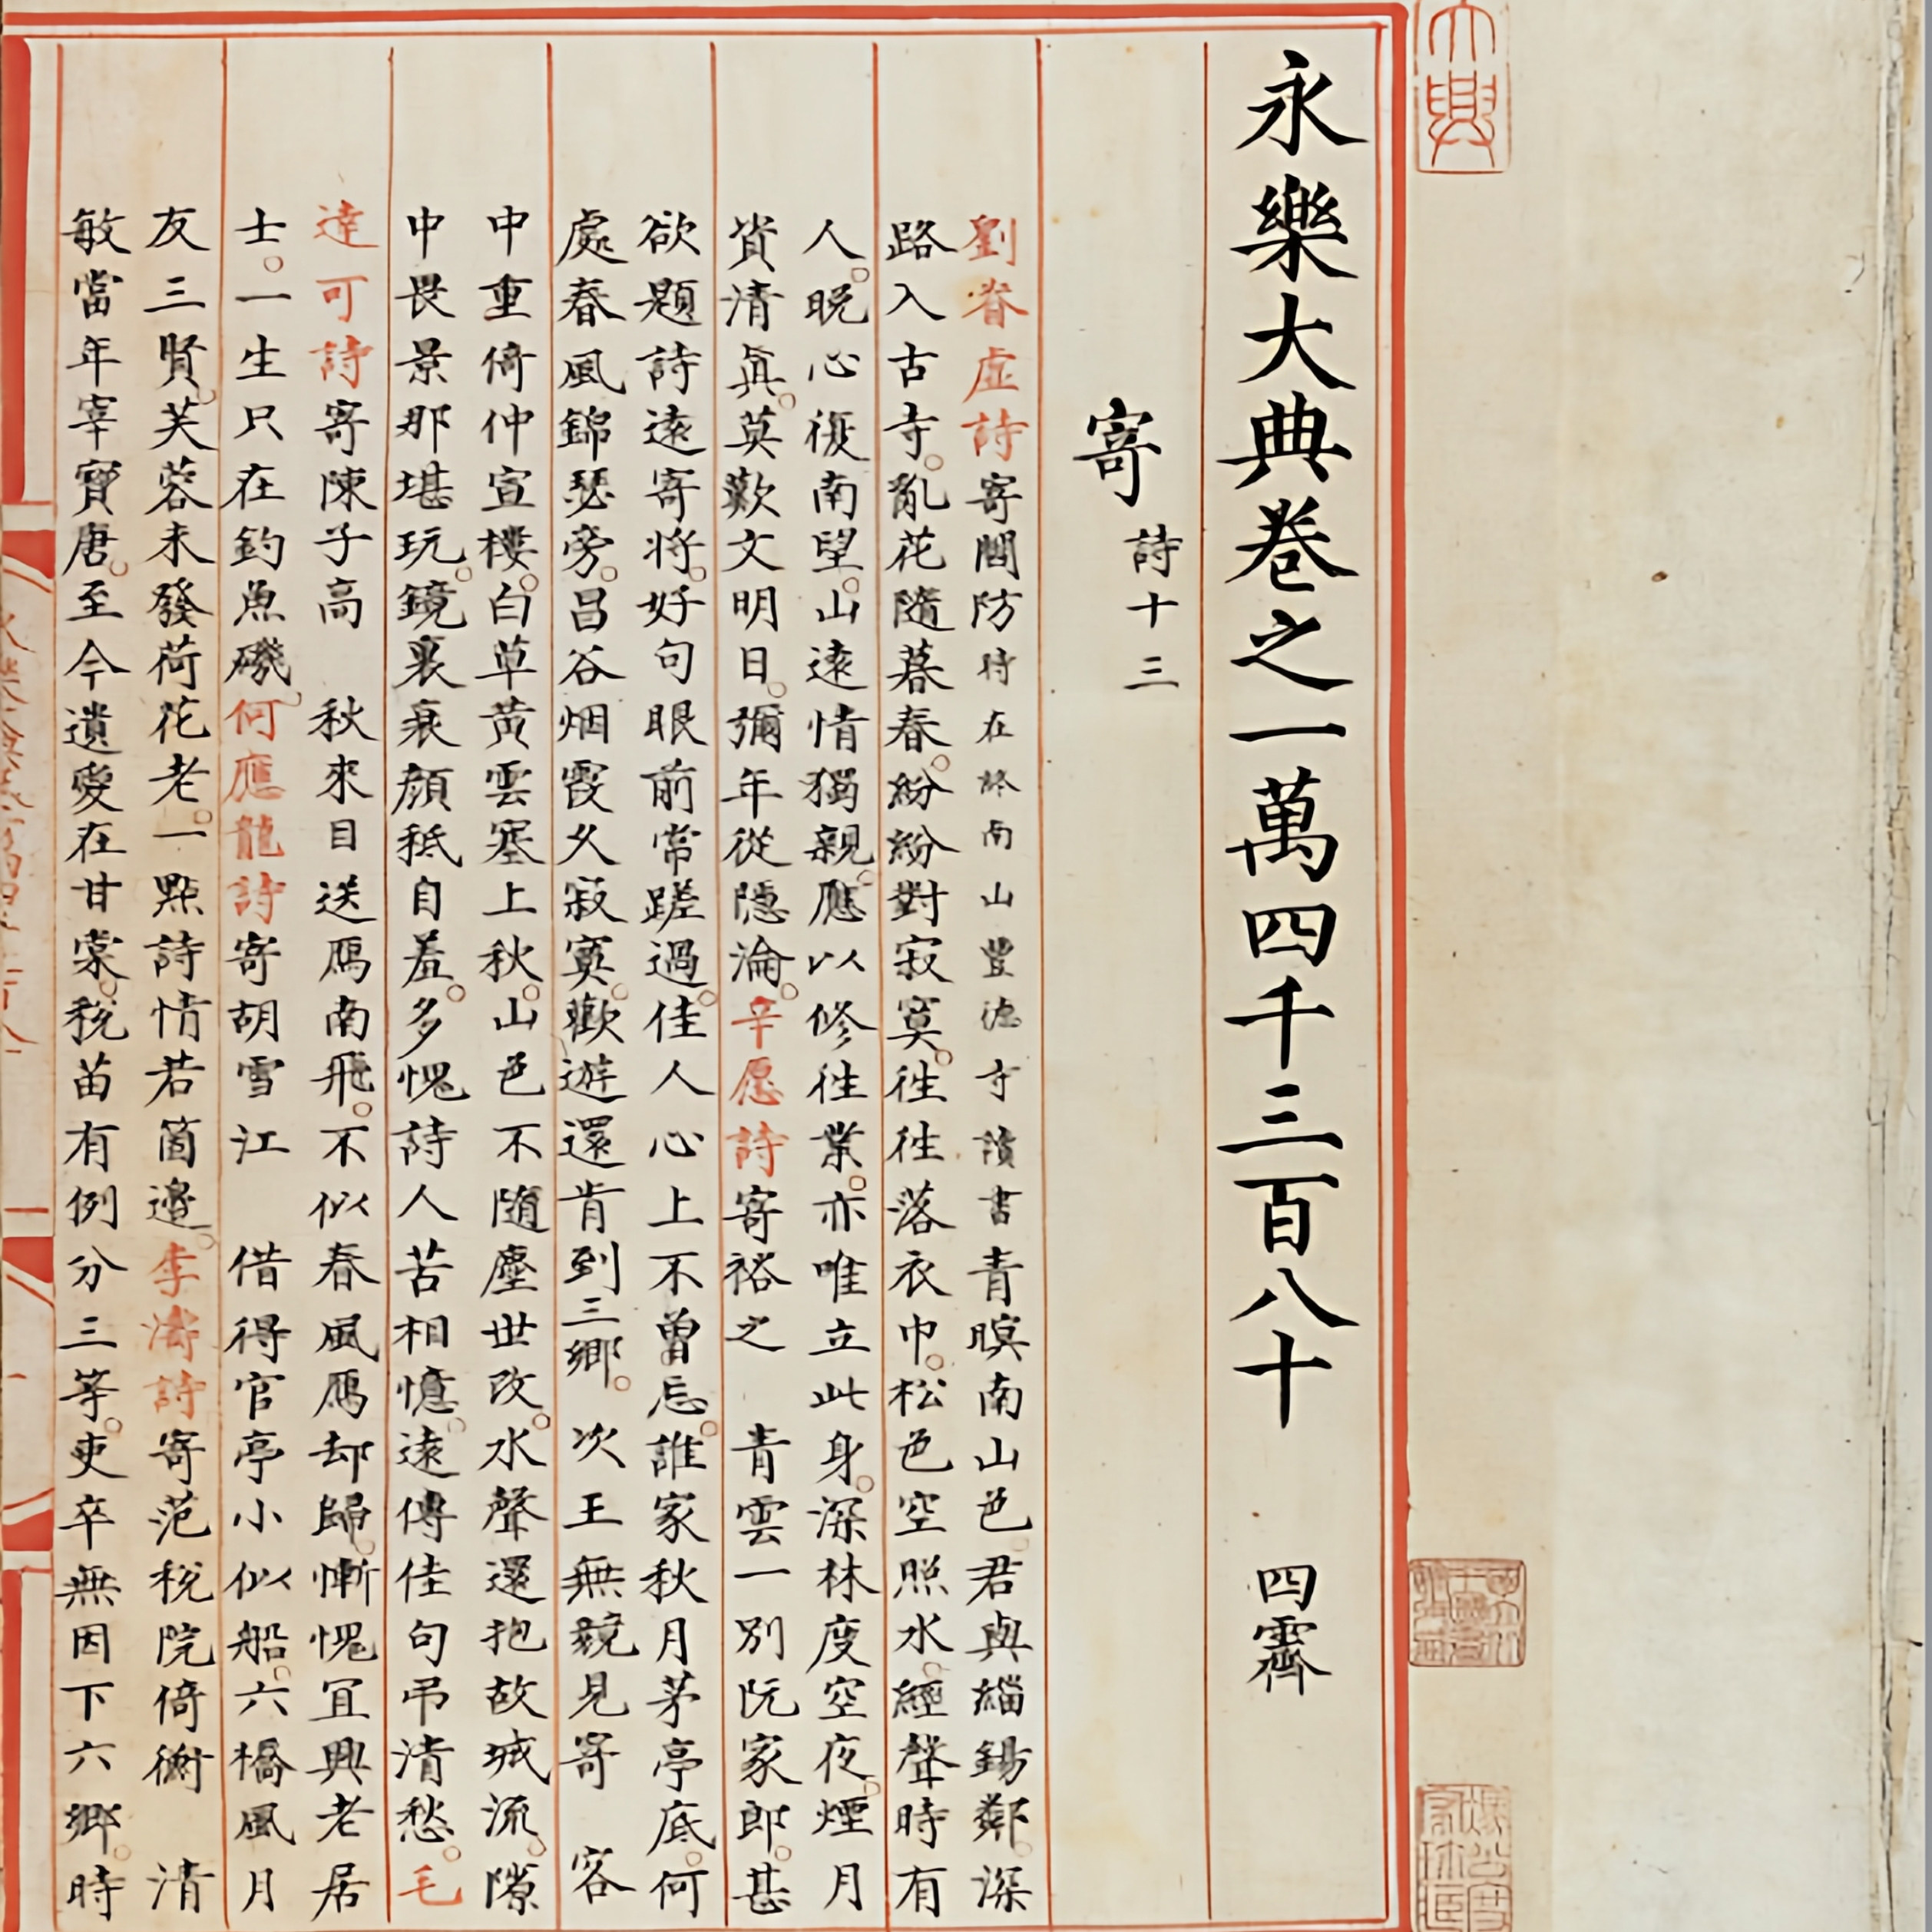 永樂大典卷之一萬四千三百八十 四霽
寄 詩十三
劉眘虛詩寄閻防時在終南山豐德寺讀書青暝南山色君與緇錫鄰深
路入古寺亂花隨暮春紛紛對寂寞徃徃落衣巾松色空照水經聲時有
人晚心復南望山遠情獨親應以修徃業亦唯立此身深林度空夜煙月
資清眞莫歎文明日彌年從隱淪辛愿詩寄裕之 青雲一別阮家郎甚
欲題詩遠寄將好句眼前常蹉過佳人心上不曾忘誰家秋月茅亭底何
處春風錦瑟旁昌谷烟霞久寂寞歡遊還肯到三鄉 次王無競見寄 客
中重倚仲宣樓白草黃雲塞上秋山色不隨塵世改水聲還抱故城流隙
中畏景那堪玩鏡裏衰顔秪自羞多愧詩人苦相憶遠傳佳句弔清愁毛
達可詩寄陳子高 秋來目送鴈南飛不似春風鴈却歸慚愧冝興老居
士一生只在釣魚磯何應龍詩寄胡雪江 借得官亭小似船六橋風月
友三賢芙蓉未發荷花老一點詩情若箇邉李濤詩寄范稅院倚衡 清
敏當年宰寳唐至今遺愛在甘棠稅苗有例分三等吏卒無因下六鄉時
大典